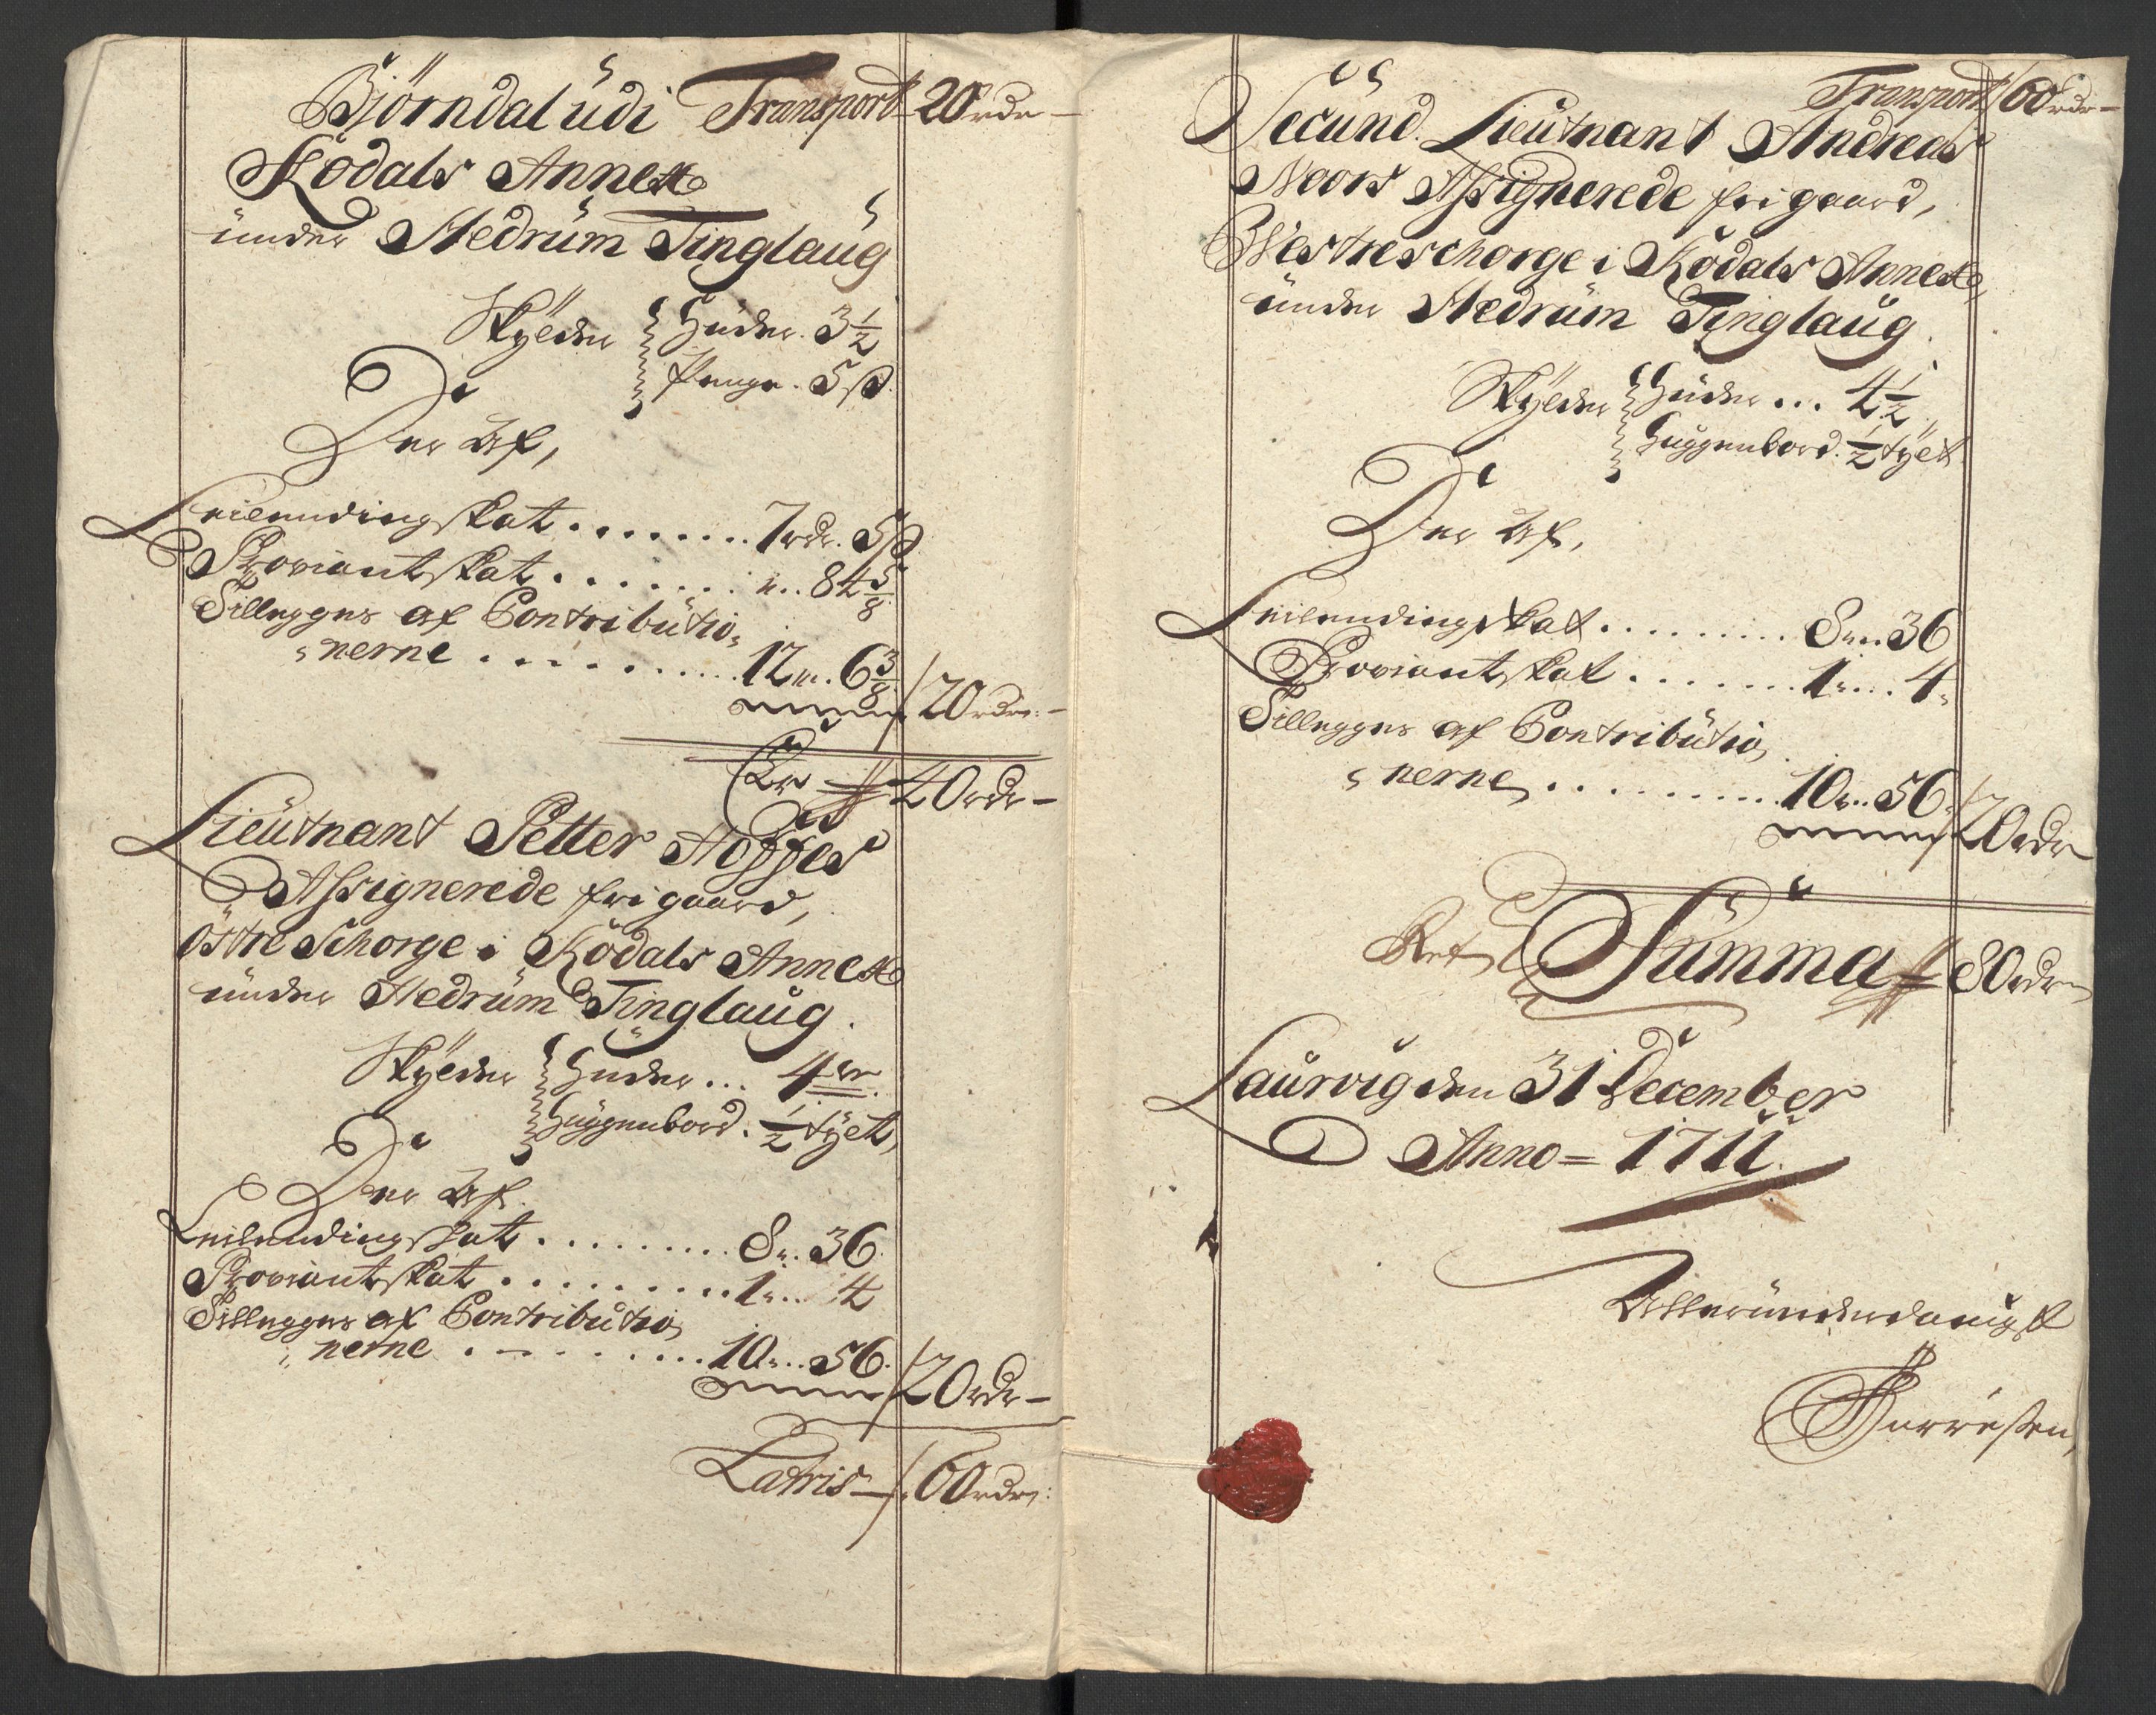 Transport 20 rdr –
Björndal udi
Kodals Annex
under Hedrum Tinglaug
Skylder Huder. 3 1/2
Penge. 5 ß.
Der Af,
Leilendingskat ........ 7 rdr. 5 ß
Proviantskat ....... ". 84 5/8
Tillegges af Contributio=
=nerne .......... 12 ". 6 3/8 / 20 rdr: –
Er 40 rdr –
Lieutnant Petter
Assignerede frigaard,
Östre Schorge i Kodals Annex
under Hedrum Tinglaug.
Skylder Huder ... 4 er
Huggenbord. 1/2 tylt,
Der Af.
Leilendingskat ......... 8 ". 36.
Proviantskat ......... 1 ".. 4
Tillegges af Contributio
=nerne .......... 10 ".. 56. / 20 rdr –
Latris – / 60 rdr:
Transport / 60 rdr –
Secund Lieutnant Andreas
Noors Assignerede frigaard,
Westre Schorge i Kodals Annex,
under Hedrum Tinglaug.
Skylder Huder ... 4 1/2,
Huggenbord. 1/2 tylt
Der Af,
Leilendingskat ......... 8 ".. 36
Proviantskat ....... 1 ".... 4 "
Tillegges af Contributio,
=nerne .......... 10 ".. 56. / 20 rdr
Summa 80 rdr
Laurvig den 31 December
Anno = 1711.
Allerunderdanigst